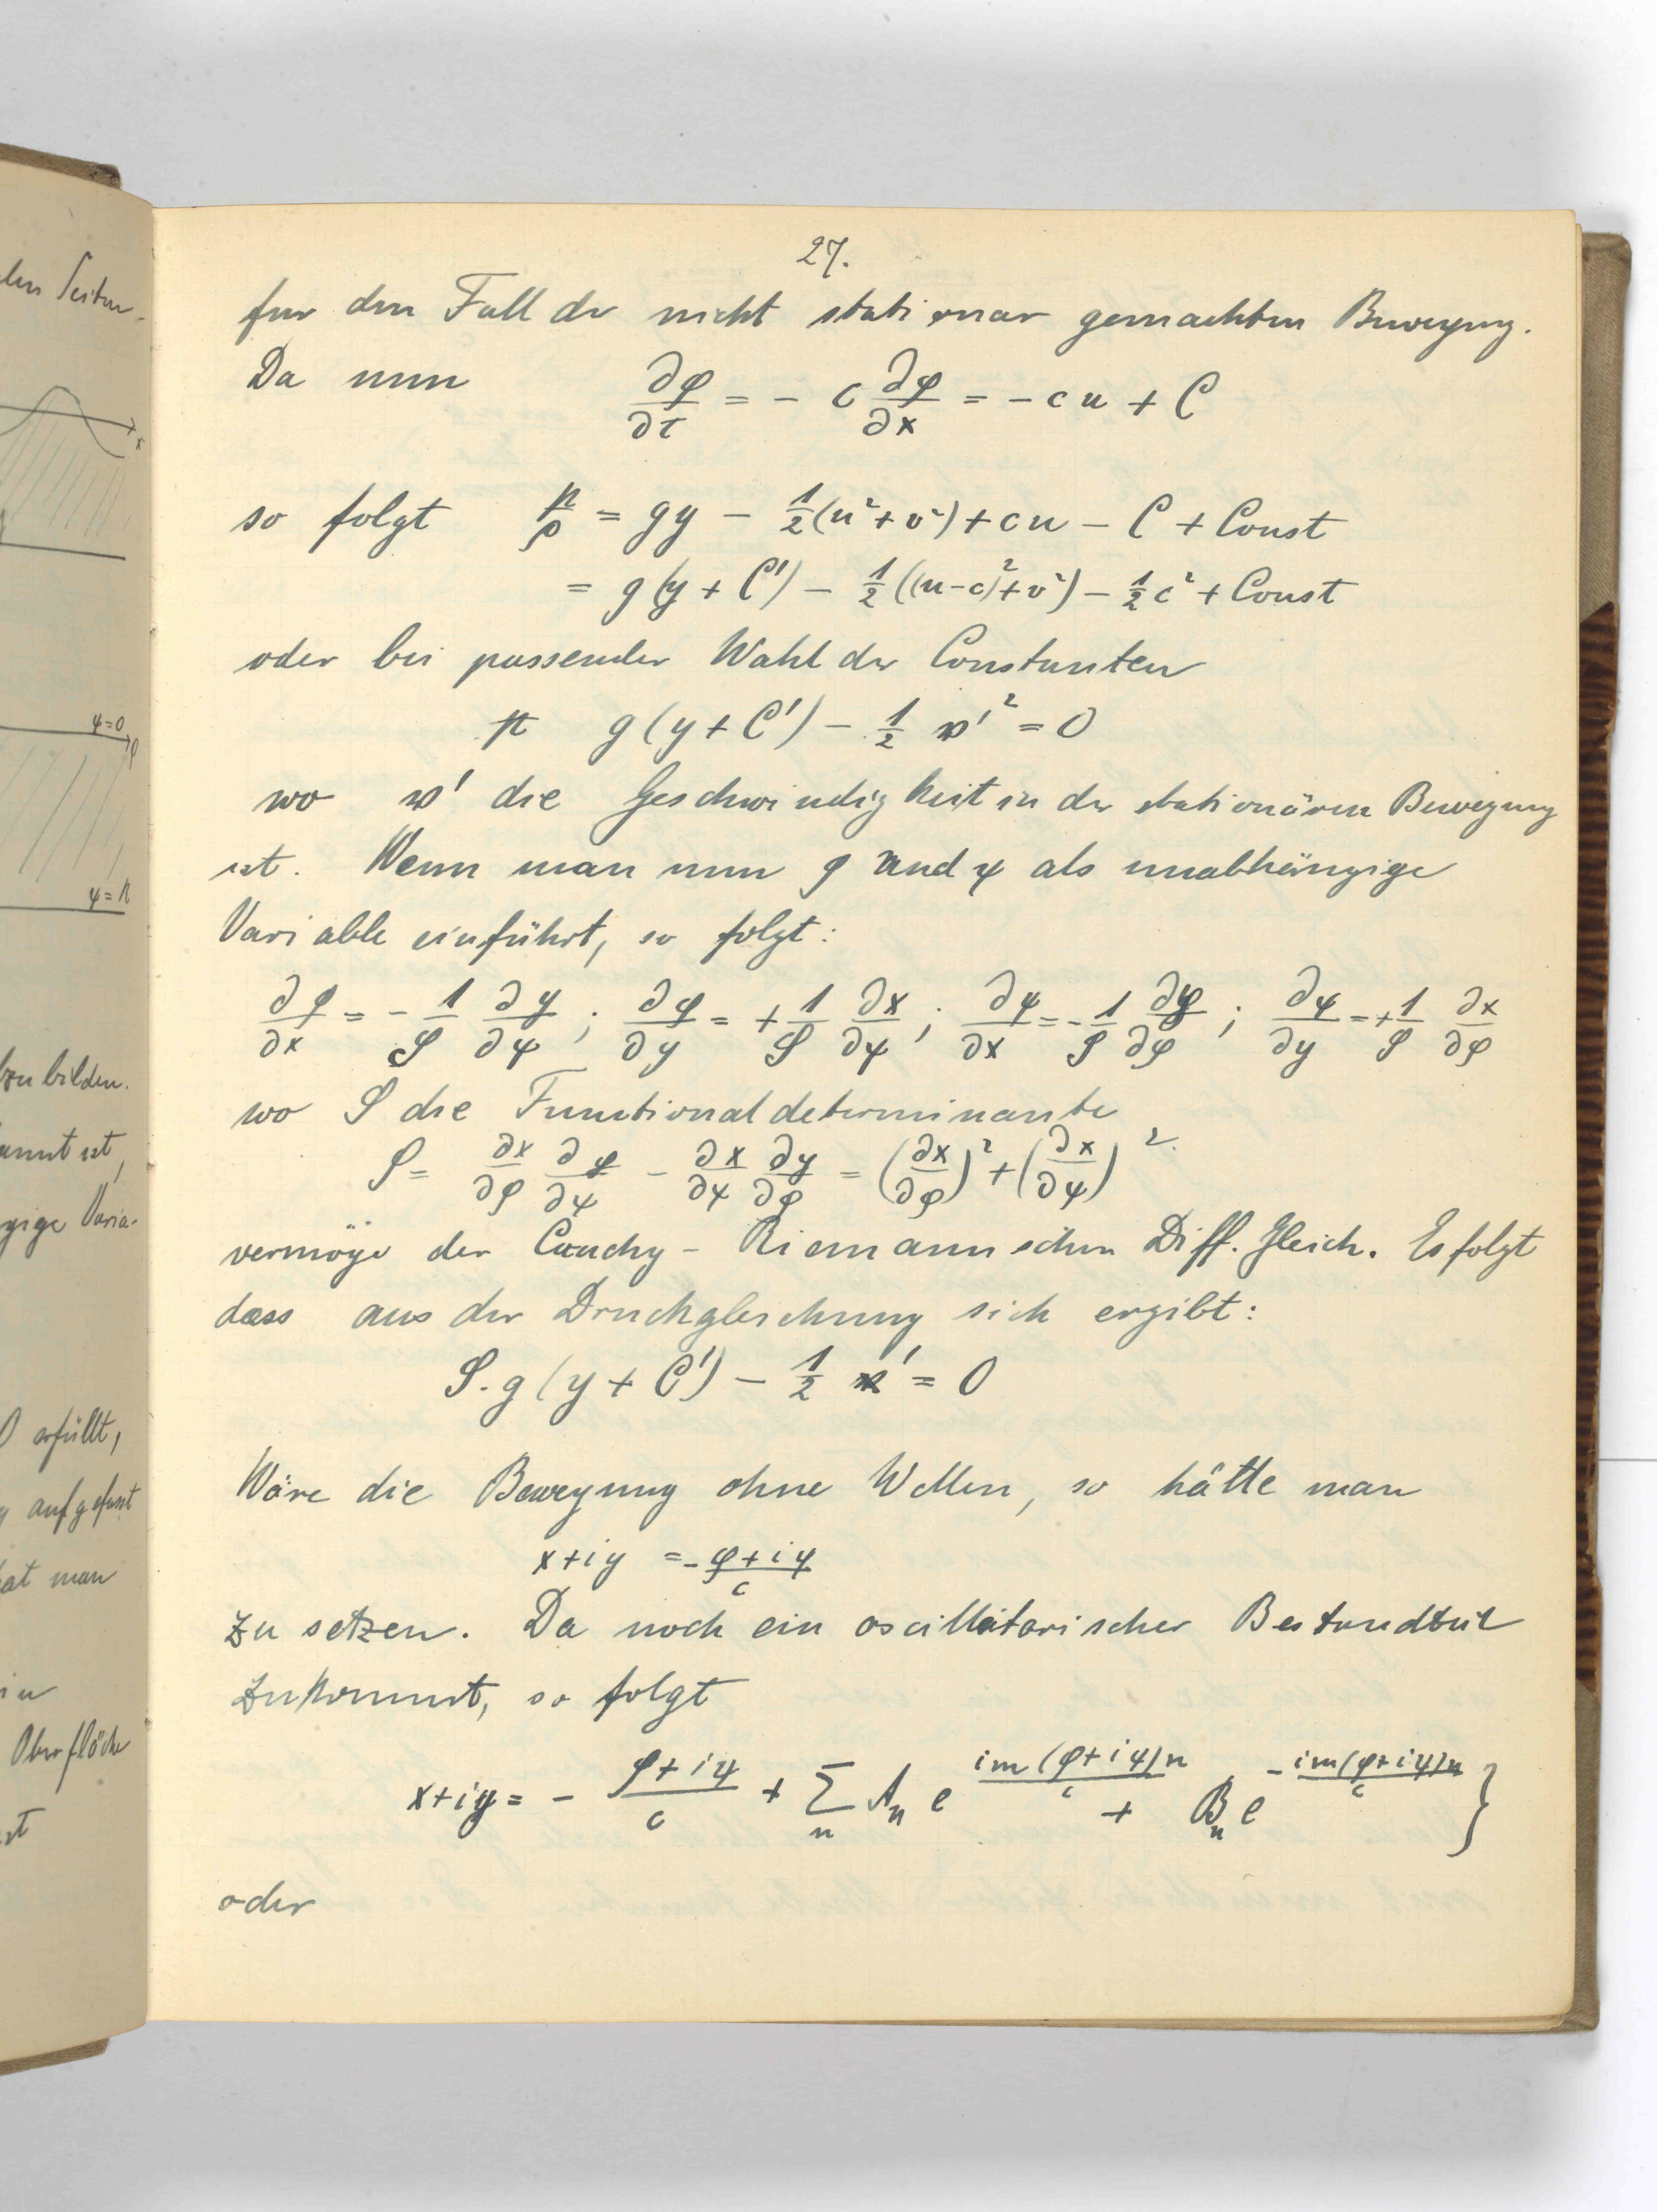 27.
fur den Fall der nicht stationar gemachten Bewegung.
Da nun ∂φ/∂t = - c ∂φ/∂x = - c u + C
so folgt p/ρ = gy - 1/2(u²+v²) + cu - C + Const
= g(y + C') - 1/2((u-c)²+v²) - 1/2 c² + Const
oder bei passender Wahl der Constanten
g(y + C') - 1/2 w'² = 0
wo w' die Geschwindigkeit in der stationären Bewegung
ist. Wenn man nun φ und ψ als unabhängige
Variable einführt, so folgt:
∂φ/∂x = - 1/S ∂y/∂ψ ; ∂φ/∂y = + 1/S ∂x/∂ψ ; ∂ψ/∂x = - 1/S ∂y/∂φ ; ∂ψ/∂y = + 1/S ∂x/∂φ
wo S die Functionaldeterminante
S = ∂x/∂φ ∂y/∂ψ - ∂x/∂ψ ∂y/∂φ = (∂x/∂φ)² + (∂x/∂ψ)²
vermöge der Cauchy - Riemannschen Diff. Gleich. Es folgt
dass aus der Druckgleichung sich ergibt:
S. g (y + C') - 1/2 = 0
Wäre die Bewegung ohne Wellen, so hätte man
x+iy = - (φ+iψ)/c
zu setzen. Da noch ein oscillatorischer Bestandteil
zukommt, so folgt
x+iy = - (φ+iψ)/c + Σ_n A_n e^(im(φ+iψ)n/c) + B_n e^(-im(φ+iψ)n/c) }
oder
den Seiten-
x
ψ=0
φ
ψ=h
zu bilden.
annt ist,
gige Varia-
0 erfüllt,
aufgefasst
at man
in
Oberfläche
st